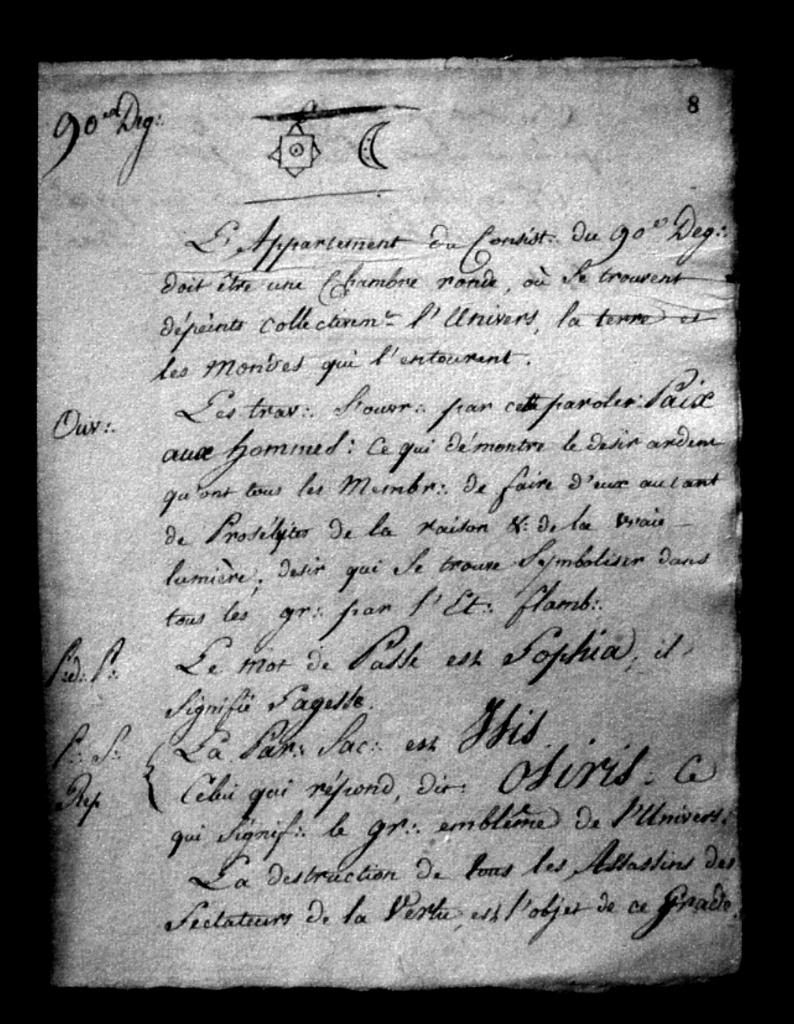 8
90.ed Deg:.
L'Appartement du Consist:. du 90e. Deg:.
doit être une Chambre ronde, où se trouvent
dépeints collectivemt. l'Univers, la terre et
les Mondes qui l'entourent.
Ouv:.
Les trav:. s'ouvr:. par cette parole: Paix
aux hommes: ce qui démontre le desir ardent
qu'ont tous les Membr:. de faire d'eux autant
de Prosélytes de la raison &: de la vraie
lumière; desir qui se trouve Symboliser dans
tous les gr:. par l'Et:. flamb:.
P:.
Le mot de Passe est Sophia, il
signifie Sagesse.
P:. S:.
La Par:. Sac:. est Isis
Rep
Celui qui répond, dit: Osiris. Ce
qui signif:. le gr:. emblême de l'Univers.
La destruction de tous les Assassins des
Sectateurs de la Vertu, est l'objet de ce Grade.